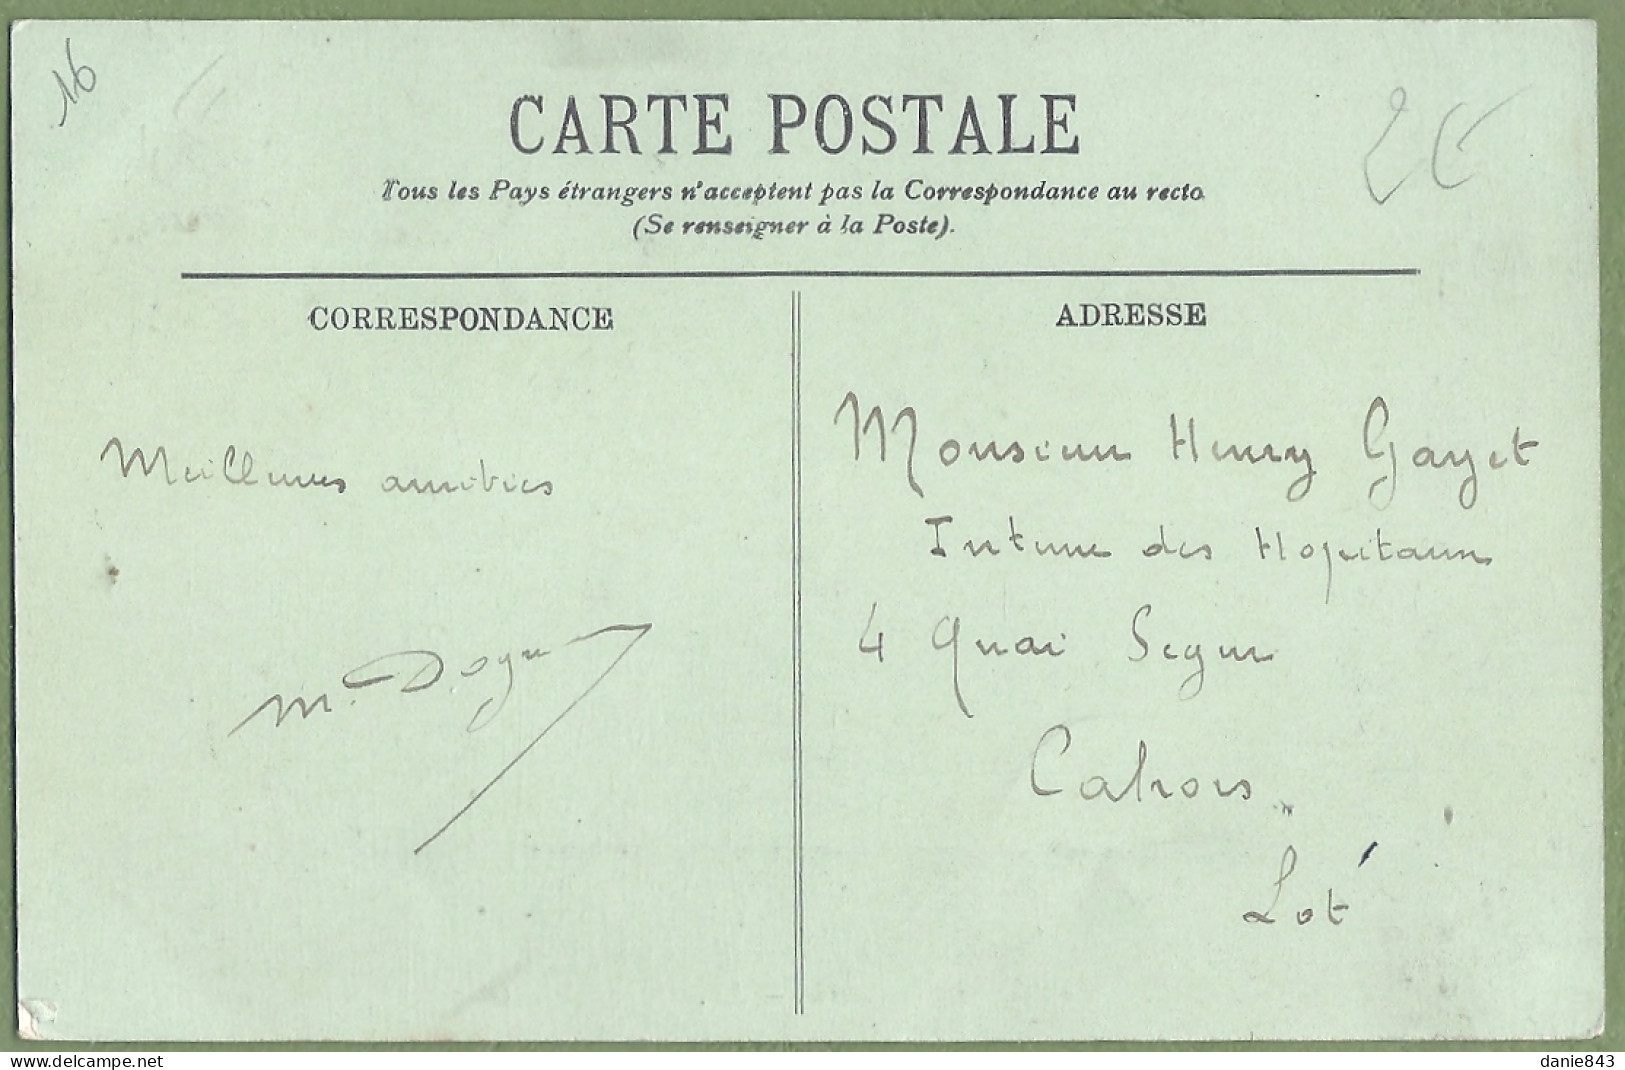 16
CARTE POSTALE
Tous les Pays étrangers n'acceptent pas la Correspondance au recto
(Se renseigner à la Poste).
CORRESPONDANCE
ADRESSE
Meilleures amitiés
M. Dogu
Monsieur Henry Gayet
Interne des Hopitaux
4 Quai Segur
Cahors
Lot
danie843